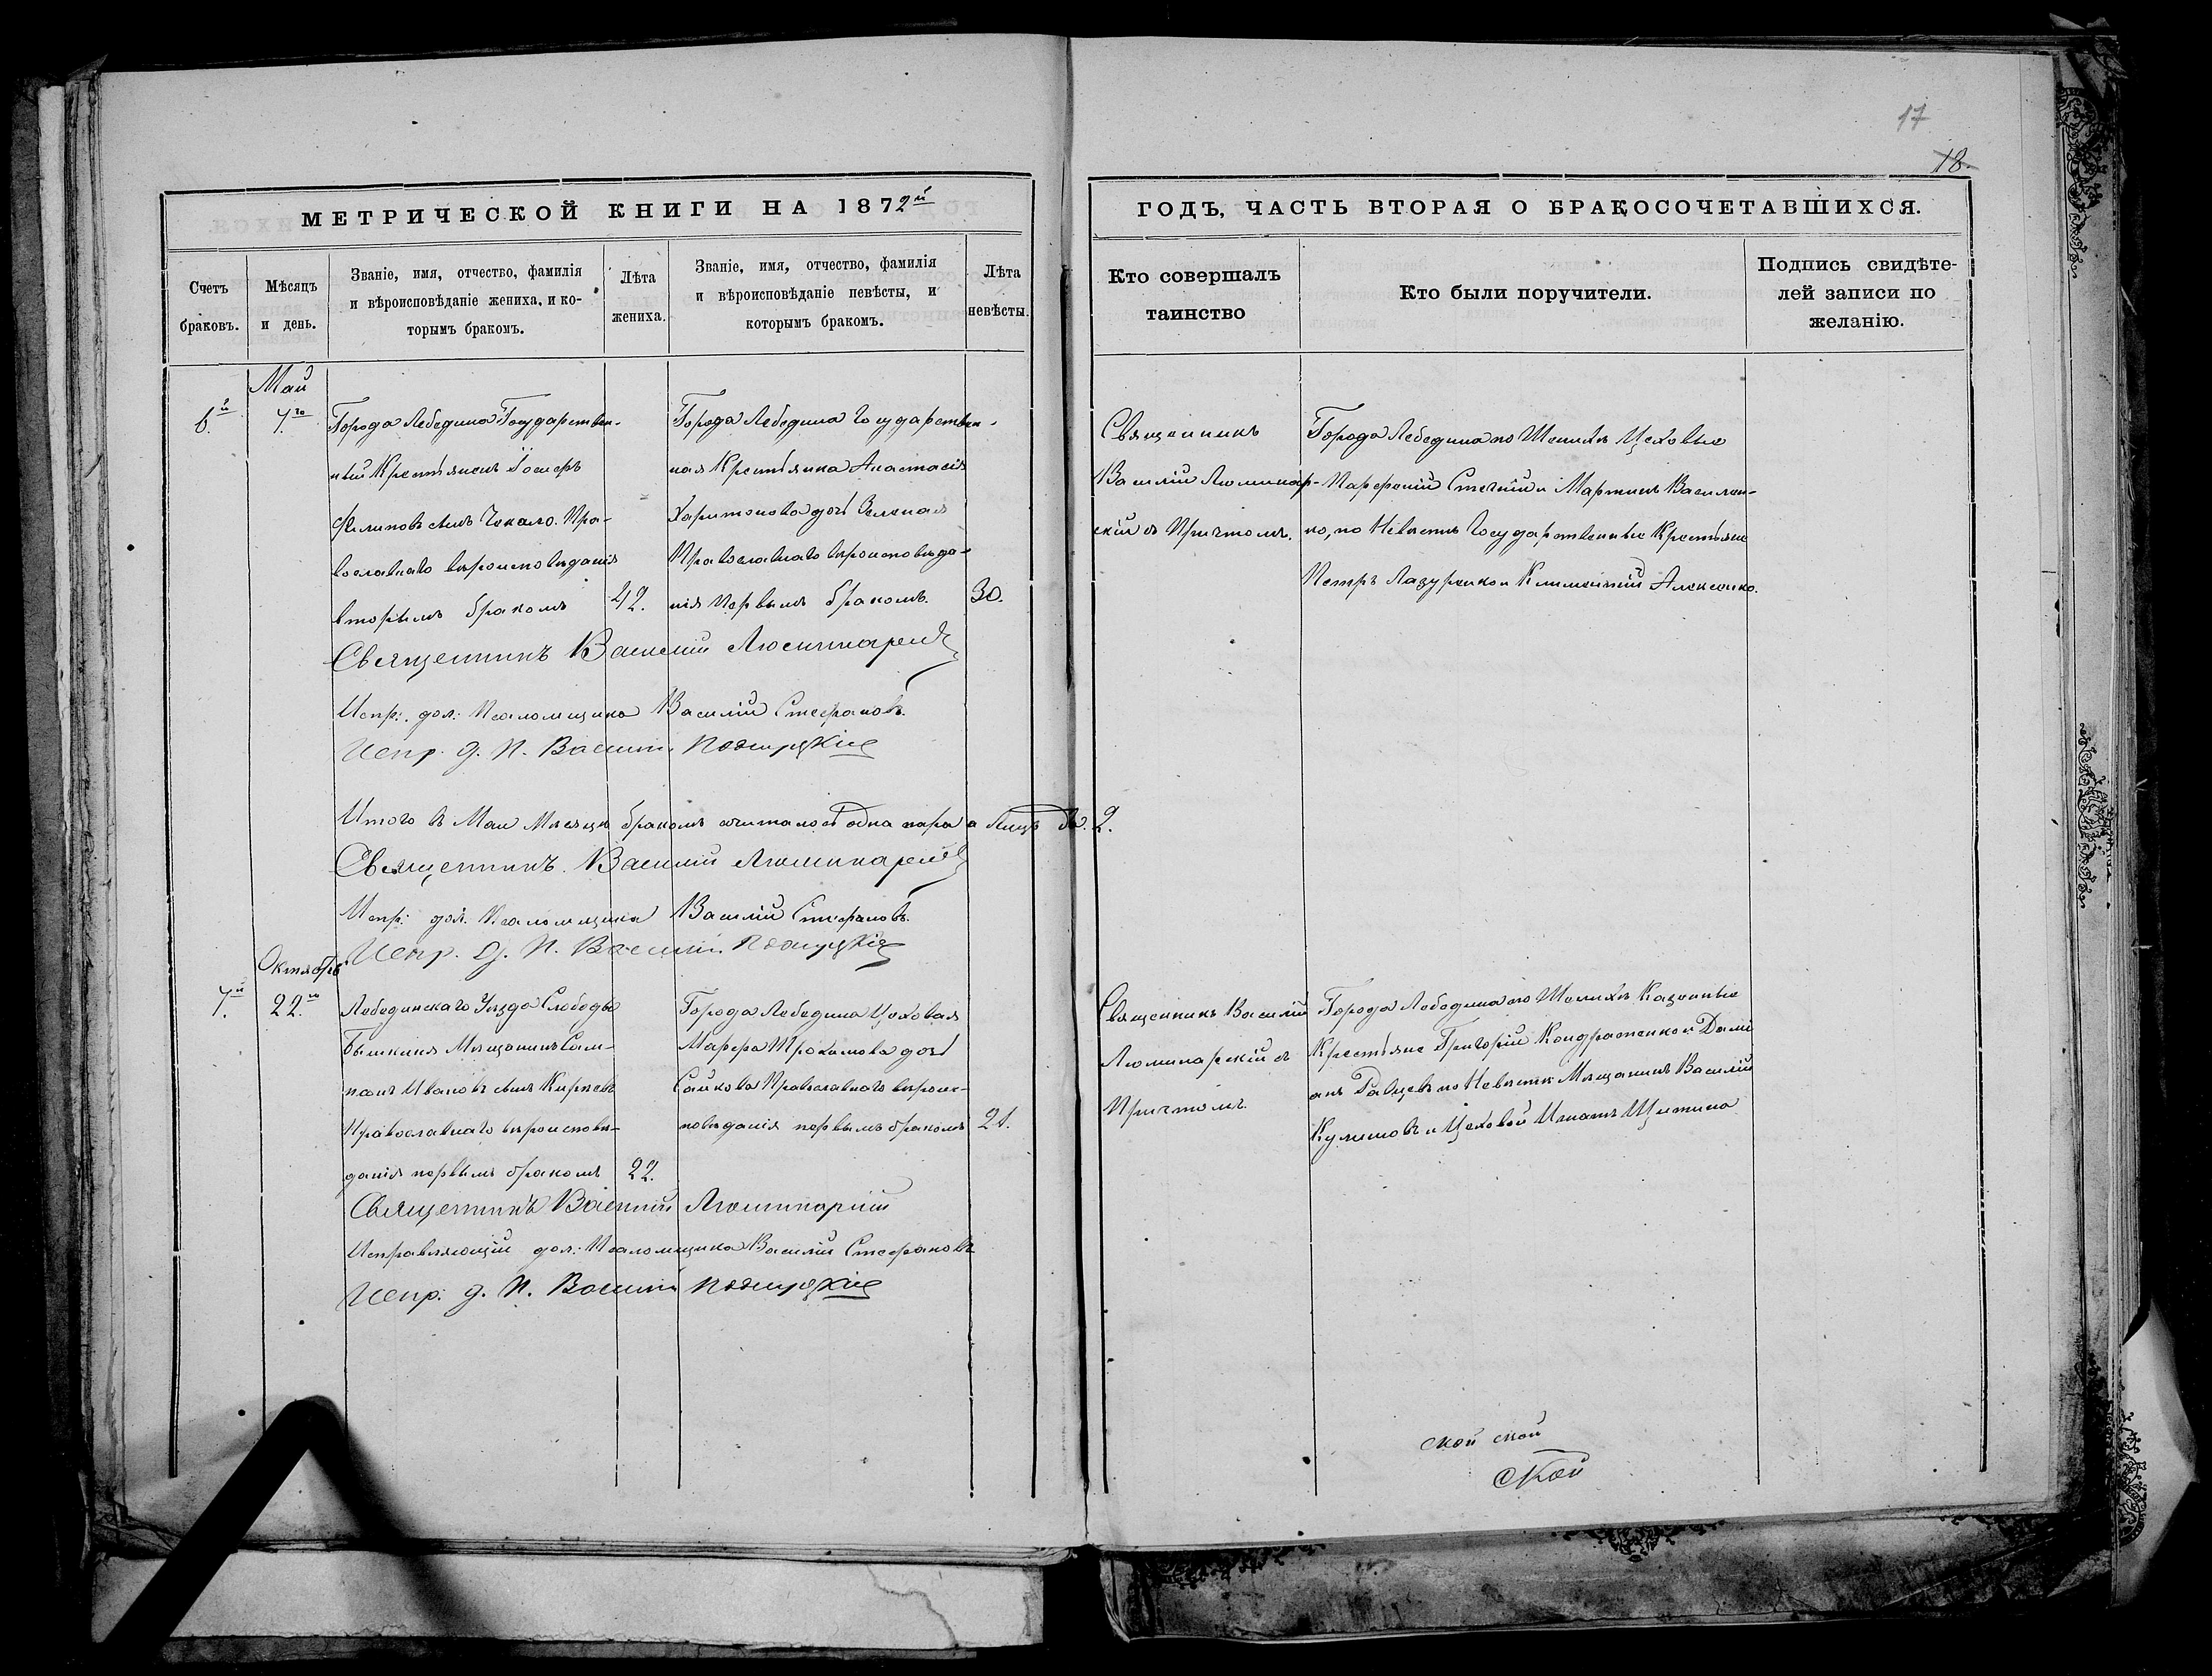 17
18
МЕТРИЧЕСКОЙ КНИГИ НА 1872й
ГОДЪ, ЧАСТЬ ВТОРАЯ О БРАКОСОЧЕТАВШИХСЯ.
Счетъ браковъ.
Мѣсяцъ и день.
Званіе, имя, отчество, фамилія
и вѣроисповѣданіе жениха, и ко-
торымъ бракомъ.
Лѣта
жениха.
Званіе, имя, отчество, фамилія
и вѣроисповѣданіе невѣсты, и
которымъ бракомъ.
Лѣта
невѣсты.
Кто совершалъ
таинство
Кто были поручители.
Подпись свидѣте-
лей записи по
желанію.
Май
6й
7го
Города Лебедина Государствен-
ный Крестьянинъ
Филиповъ сынъ Чекало. Пра-
вославнаго вѣроисповѣданія
вторымъ бракомъ
42.
Города Лебедина Государствен-
ная Крестьянка Анастасія
Харитонова дочь Зеленая
Православнаго вѣроисповѣда-
нія первымъ бракомъ.
30.
Священникъ
Василій Люминар-
скій съ Причтомъ.
Города Лебедина по Женихѣ Цеховые
Парфеній и Мартинъ Василен-
ко, по Невѣстѣ Государственные Крестьяне
Петръ Лазуренко и Климентій Алексенко.
Священникъ Василій Люминарскій
Испр: дол: Псаломщика Василій Стефановъ.
Испр. д. П. Василій
Итого въ Маи Мѣсяцѣ бракомъ сочиталось одна пара а лицъ об. 2.
Священникъ. Василій Люминарскій
Испр: дол. Псаломщика Василій Стефановъ.
Испр. д. П. Василій
Октябрь
7й
22го
Лебединскаго Уѣзда Слободы
Бышкиня Мѣщанинъ Сам-
псонъ Ивановъ сынъ Кирѣевъ
Православнаго вѣроисповѣ-
данія первымъ бракомъ
22.
Города Лебедина Цеховая
Марфа Трохимова дочь
Сайкова Православнаго вѣроис-
повѣданія первымъ бракомъ
21.
Священникъ Василій
Люминарскій съ
Причтомъ.
Города Лебедина по Женихѣ Казенные
Крестьяне Григорій Кондратенко и Дамі
анъ по Невѣстѣ Мѣщанинъ Василій
Кулишовъ и Цеховой Игнатъ
Священникъ Василій Люминарскій
Исправляющій дол: Псаломщика Василій Стефановъ
Испр: д. П. Василій
ской ской
ской